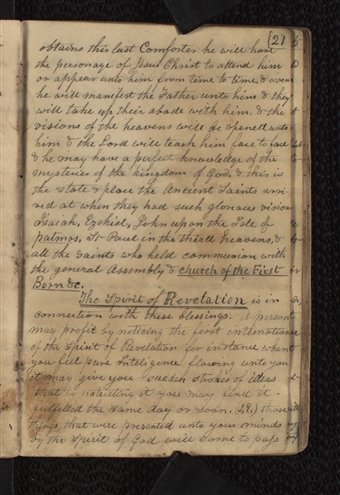 [21
obtains this last Comforter he will have
the personage of Jesus Christ to attend him
or appear unto him from time to time. & even
he will manifest the Father unto him & they
will take up their abode with him, & the
visions of the heavens will be opened unto
him & the Lord will teach him face to face
& he may have a perfect knowledge of the
mysteries of the kingdom of God, & this is
the state & place the Ancient Saints arri-
ved at when they had such glorious vision
Isaiah, Ezekiel, John upon the Isle of
patmos, St Paul in the third heavens, &
all the Saints who held communion with
the general Assembly & church of the First
Born &c.
The Spirit of Revelation is in
connection with these blessings. A person
may profit by noticing the first intimations
of the Spirit of Revelation for instance when
you feel pure Inteligence flowing unto you
it may give you sudden strokes of ideas
that by noticeing it you may find it
fulfilled the same day or soon. (I.E.) those
things that were presented unto your minds
by the Spirit of God will come to pass